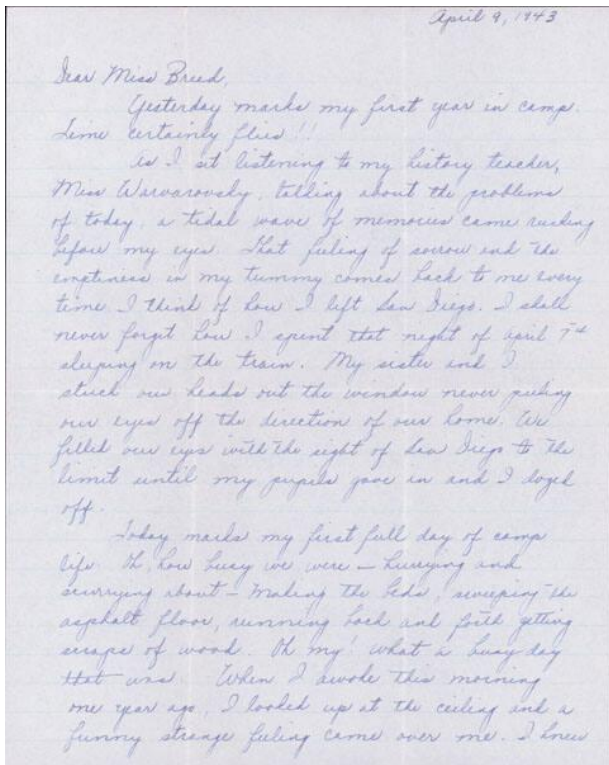 April 9, 1943
Dear Miss Breed,
Yesterday marks my first year in camp.
Time certainly flies!!
As I sit listening to my history teacher,
Miss Warvarovsky, talking about the problems
of today, a tidal wave of memories came rushing
before my eyes. That feeling of sorrow and the
emptiness in my tummy comes back to me every
time I think of how I left San Diego. I shall
never forget how I spent that night of April 7th
sleeping on the train. My sister and I
stuck our heads out the window never
our eyes off the direction of our home. We
filled our eyes with the sight of San Diego to the
limit until my pupils gave in and I dozed
off.
Today marks my first full day of camp
life. Oh, how busy we were — hurrying and
scurrying about — making the beds, sweeping the
asphalt floor, running back and forth getting
scraps of wood. Oh my! what a busy day
that was. When I awoke this morning
one year ago, I looked up at the ceiling and a
funny strange feeling came over me. I knew